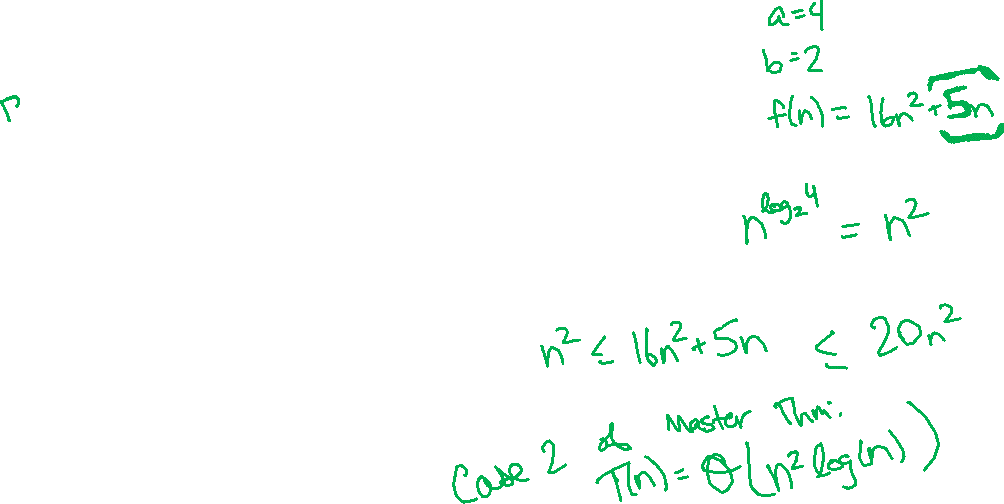 a=4
b=2
f(n) = 16n²+5n
n^{log₂4} = n²
n² ≤ 16n²+5n ≤ 20n²
Case 2 of Master Thm:
T(n) = Θ(n² log(n))